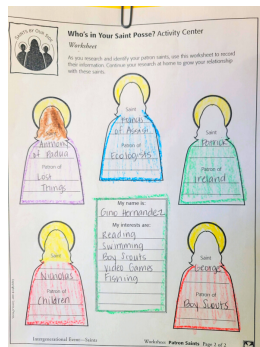 SAINTS OF OUR POSSE
Who's in Your Saint Posse? Activity Center
Worksheet
As you research and identify your patron saints, use this worksheet to record
their information. Continue your research at home to grow your relationship
with these saints.
Saint
Anthony
of Padua
Patron of
Lost
Things
Saint
Francis
of Assisi
Patron of
Ecologists
Saint
Patrick
Patron of
Ireland
My name is:
Gino Hernandez
My interests are:
Reading
Swimming
Boy Scouts
Video Games
Fishing
Saint
Nicholas
Patron of
Children
Saint
George
Patron of
Boy Scouts
Intergenerational Event—Saints
Worksheet: Patron Saints Page 1 of 2